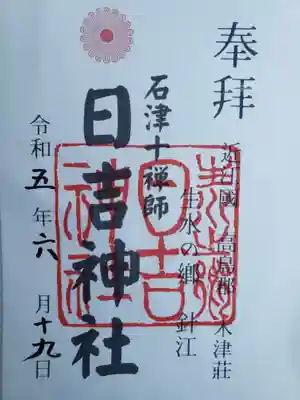 奉拝
近江國 高島郡 木津荘
生水の郷 針江
石津十禅師
日吉神社
令和五年六月十九日
日吉
神社